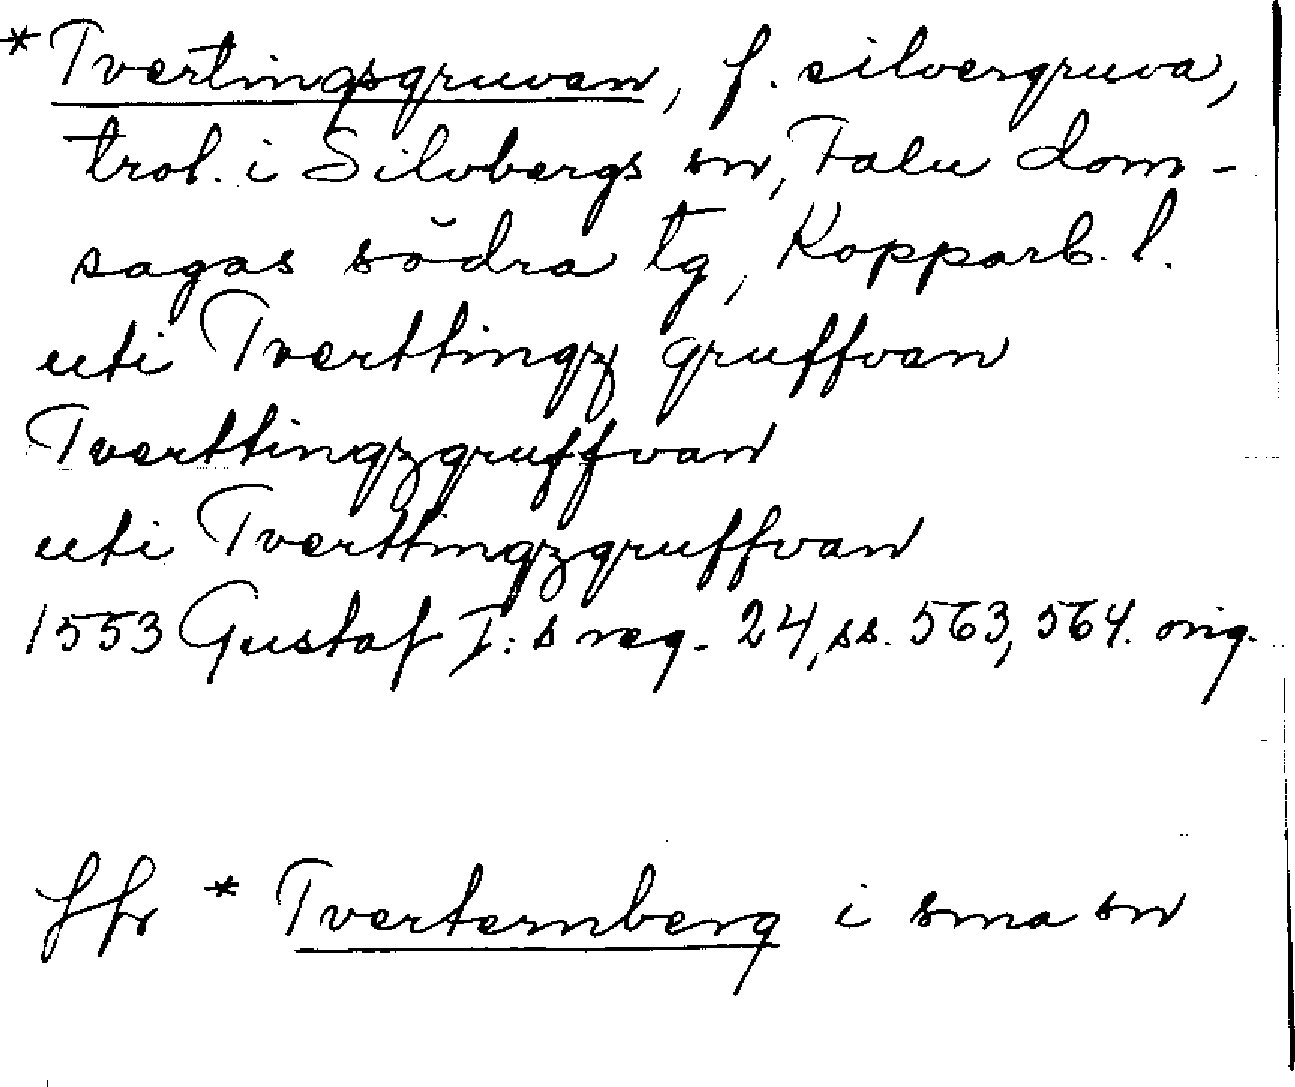 *Tvertingsgruvan, f. silvergruva,
trol. i Silvbergs sn, Falu dom-
sagas södra tg, Kopparb. l.
uti Tverttingz gruffvan
Tverttingzgruffvan
uti Tverttingzgruffvan
1553 Gustaf I:s reg. 24, ss. 563, 564. orig.
Jfr * Tverternberg i sma sn